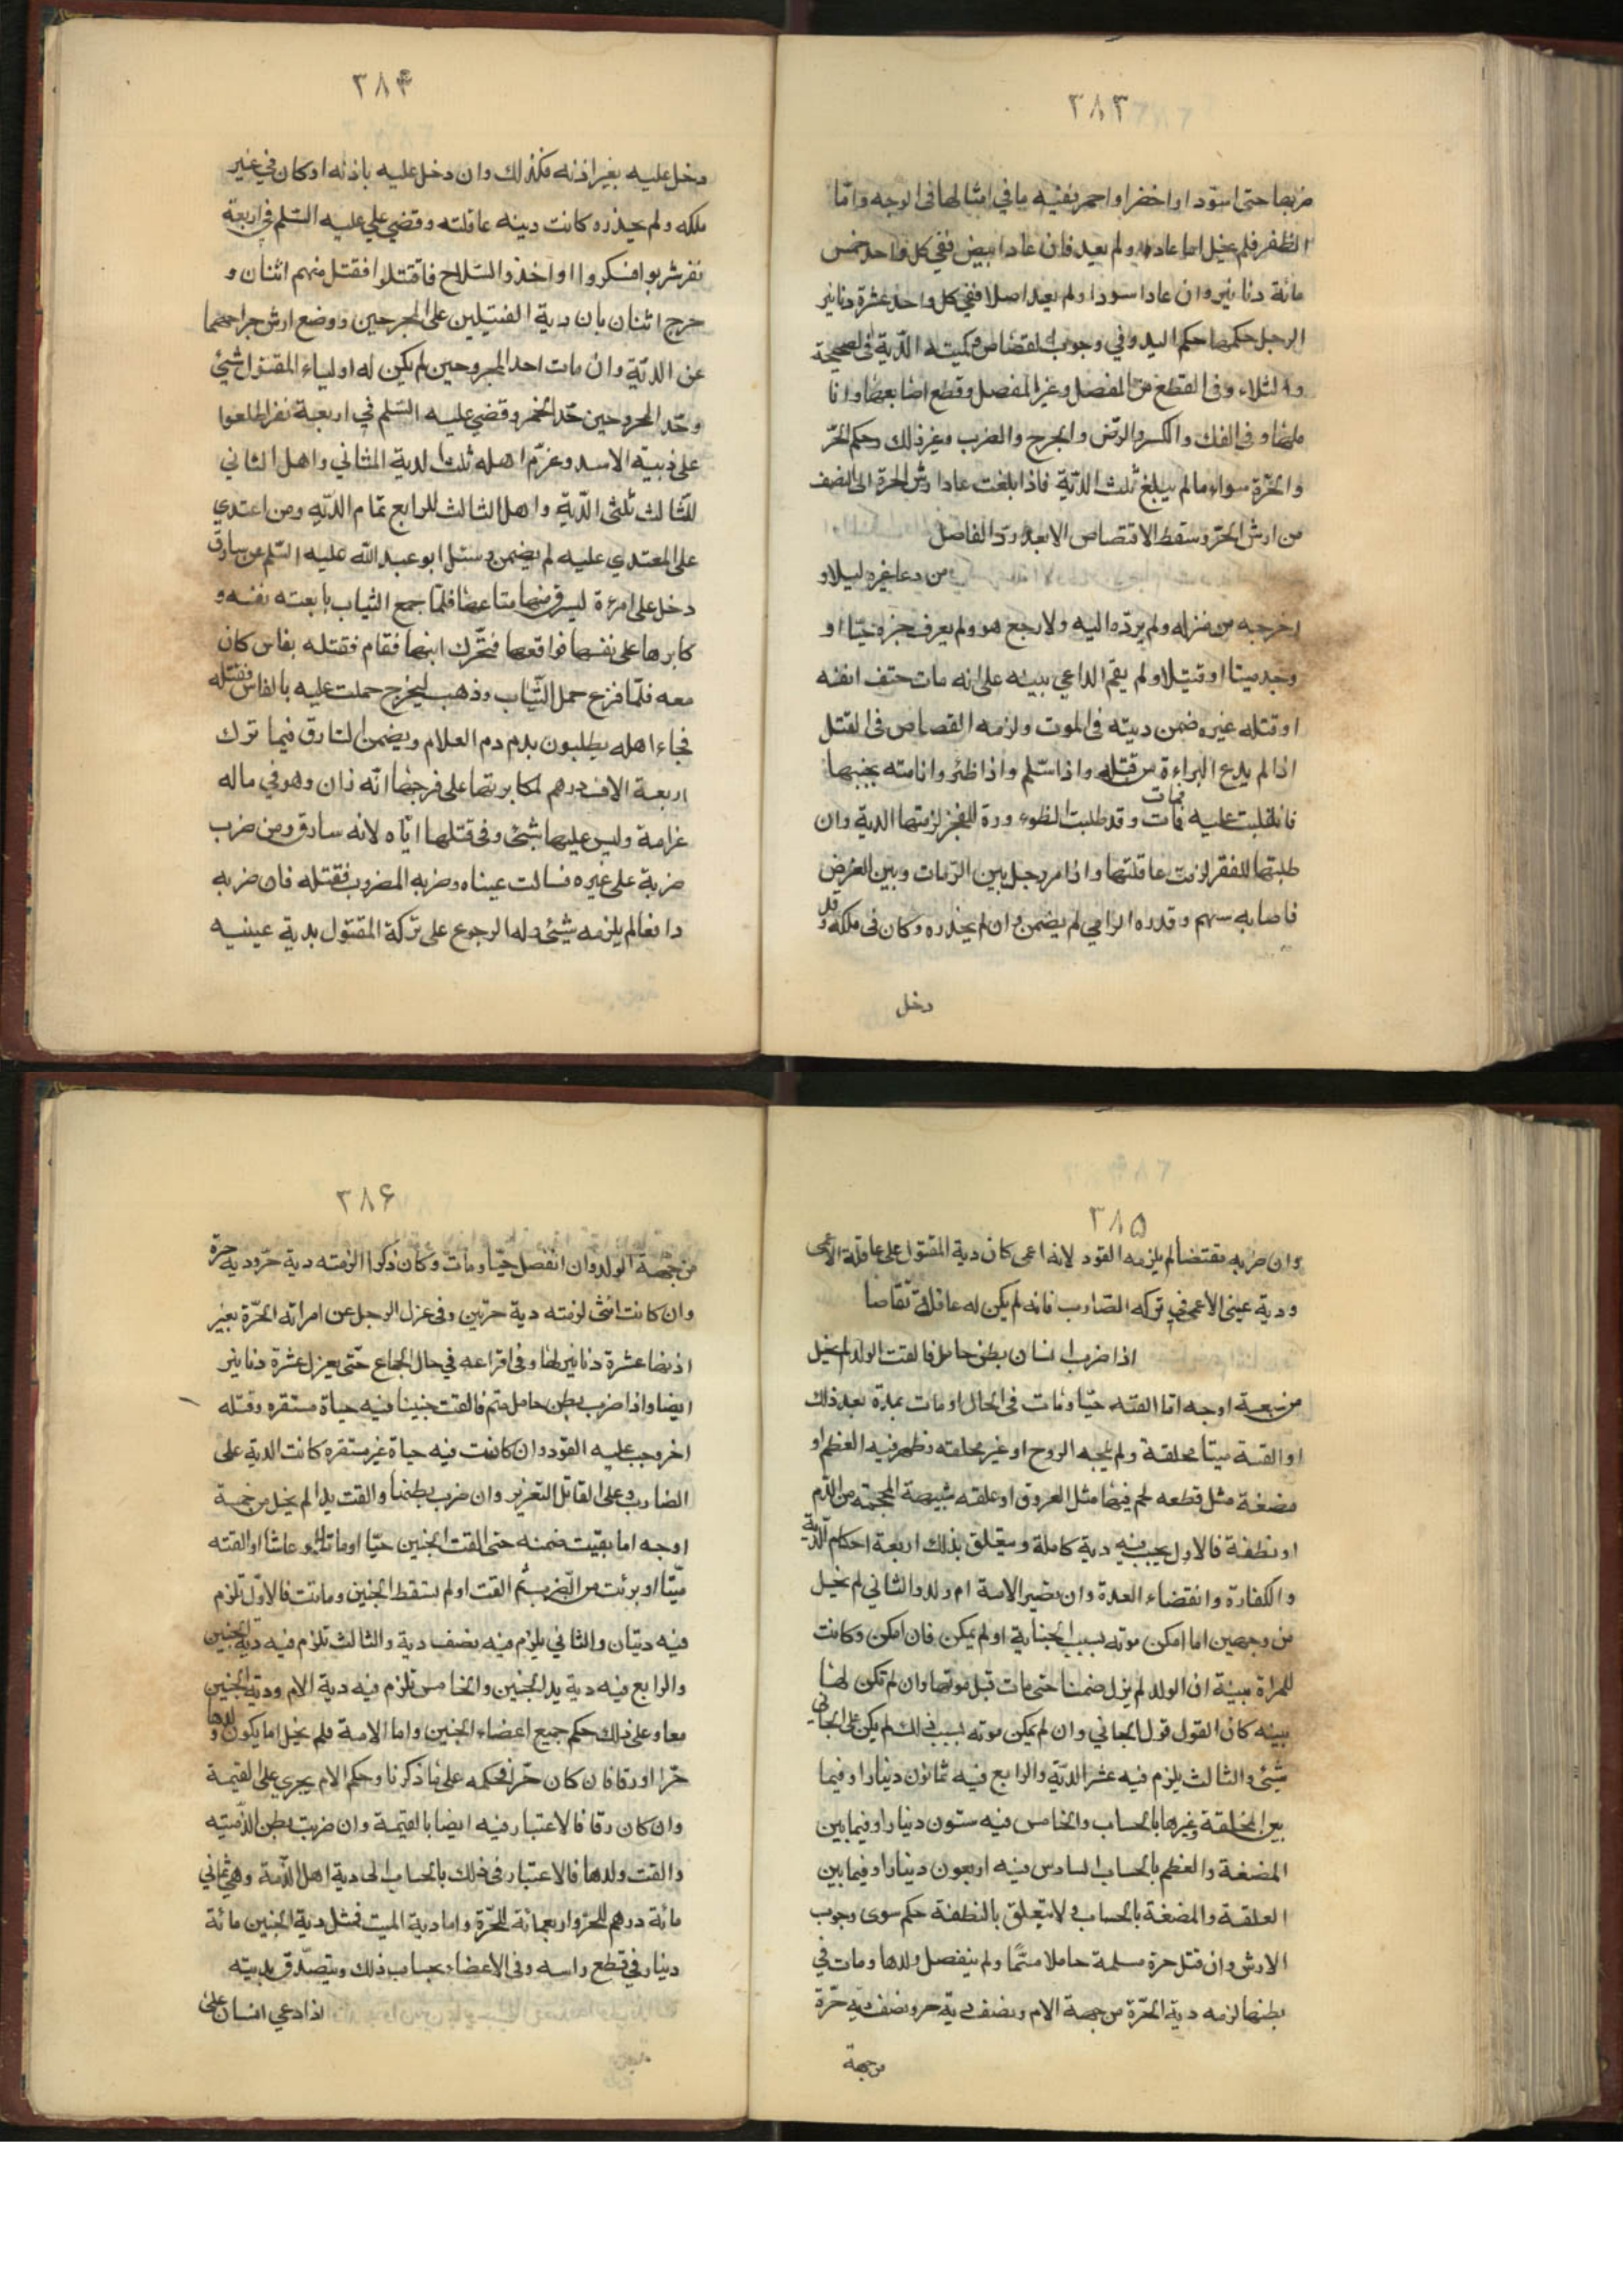 ٣٨٣
ضربها حتى اسود او اخضر او احمر ففيه ما في امثالها فى الوجه وامّا
الظفر فلم يخل اما عاد او لم يعد فان عاد ابيض ففي كل واحد خمس
مائة دنانير وان عاد اسود او لم يعد اصلا ففي كل واحد عشرة دنانير
الرجل حكمها حكم اليد وفي وجوب القصاص وكميته الدّية فى الصحيحة
والشلاء وفى القطع من المفصل وغير المفصل وقطع اصابعها وانا
ملها و فى الفك والكسر والرّض والجرح والضرب وغير ذلك وحكم الحرّ
والحرّة سواء مالم يبلغ ثلث الدّية فاذا بلغت عاد ارش الحرة الى النصف
من ارش الحرّ وسقط الاقتصاص الا بعد ردّ الفاصل
من دعا غيره ليلا و
اخرجه من منزله ولم يردّه اليه ولا رجع هو ولم يعرف خبره حيّا او
وجد ميتا او قتيلا ولم يقم الداعي ببينه على انه مات حتف انفه
او قتله غيره ضمن ديته فى الموت ولزمه القصاص فى القتل
اذا لم يدع البراءة من قتله واذا استلم واذا ظئر وانامته بجنبها
فانقلبت عليه فمات وقد طلبت الظوءورة للفخر لزمتها الدية وان
طلبتها للفقر لزمت عاقلتها واذا مر رجل بين الرّماة وبين الغرض
فاصابه سهم وقد حذره الرامي لم يضمن وان لم يحذره وكان فى ملكه وقد
دخل
٣٨۴
دخل عليه بغير اذنه فكذلك وان دخل عليه باذنه او كان في غير
ملكه ولم يحذره كانت ديته عاقلته وقضي علي عليه السّلم في اربعة
نفر شربوا فسكروا واخذوا السّلاح فاقتتلوا فقتل منهم اثنان و
جرح اثنان بان دية القتيلين على المجروحين ووضع ارش جراحهما
عن الديّة وان مات احد المجروحين لم يكن له اولياء المقتول شيئ
وحدّ المجروحين حدّ الخمر وقضي عليه السّلم في اربعة نفر اطلعوا
على زبية الاسد وغرّم اهله ثلث الدية الثاني واهل الثاني
للثالث ثلثى الدّية واهل الثالث للرابع تمام الديّة ومن اعتدي
على المعتدي عليه لم يضمن وسئل ابو عبد الله عليه السّلم عن سارق
دخل على امرءة ليسرق منها متاعها فلمّا جمع الثياب تابعته نفسه و
كابرها على نفسها فواقعها فتحّرك ابنها فقام فقتله بفاس كان
معه فلمّا فرغ حمل الثّياب وذهب ليخرج حملت عليه بالفاس فقتلته
فجاء اهله يطلبون بدمه دم الغلام ويضمن السارق فيما ترك
اربعة الاف درهم لمكابرتها على فرجها انّه زان وهو في ماله
غرامة وليس عليها شيئ وفى قتلها ايّاه لانه سارق ومن ضرب
ضربة على غيره فسالت عيناه وضربه المضروب فقتله فان ضربه
دافعا لم يلزمه شيئ وله الرجوع على تركة المقتول بدية عينيه
٣٨۵
وان ضربه مقتضا لم يلزمه القود لانه اعمى كان دية المقتول على عاقلة الاعمى
ودية عيني الاعمى في تركه الضارب فانه لم يكن له عاقلة تقاصا
اذا ضرب انسان بطن حامل فالقت الولد لم يخل
من سبعة اوجه امّا القته حيّا ومات فى الحال او مات بمدة بعد ذلك
او القته ميتا مخلقة ولم يلجه الروح او غير مخلقه وظهر فيه العظم او
مضغة مثل قطعه لحم فيها مثل العروق او علقه شبيهة المحجمه من الدّم
او نطفة فالاول يجب فيه دية كاملة ويتعلق بذلك اربعة احكام الدّية
والكفارة وانقضاء العدة وان تصير الامة ام ولد والثاني لم يخل
من وجهين اما امكن موته بسبب الجناية او لم يمكن فان امكن وكانت
للمراة بينة ان الولد لم يزل ضمنا حتى مات قبل موتها وان لم تكن لها
بينه كان القول قول الجاني وان لم يمكن موته بسبب ذلك لم يكن على الجاني
شيئ والثالث يلزم فيه عشر الديّة والرابع فيه ثمانون دينارا وفيما
بين المخلقة وغيرها بالحساب والخامس فيه ستون دينارا وفيما بين
المضغة والعظم بالحساب السادس فيه اربعون دينارا وفيما بين
العلقة والمضغة بالحساب ولا يتعلق بالنطفة حكم سوى وجوب
الارش وان قتل حرة مسلمة حاملا متمّا ولم ينفصل ولدها ومات في
بطنها لزمه دية الحرّة من جهة الام ونصف دية حر ونصف دية حرّة
من جهة
٣٨۶
من جهة الولد وان انفصل حيّا ومات وكان ذكرا لزمته دية حر ودية حرة
وان كانت انثى لزمته دية حرّتين وفى عزل الرجل عن امراته الحرّة بغير
اذنها عشرة دنانير لها وفى افزاعه في حال الجماع حتّى يعزل عشرة دنانير
ايضا واذا ضرب بطن حامل متم فالقت جنينا فيه حياة مستقره وقتله
اخر وجب عليه القود وان كانت فيه حياة غير مستقره كانت الدية على
الضارب وعلى القاتل التعزير وان ضرب بطنها والقت يدا لم يخل من خمسة
اوجه اما بقيّت ضمنه حتى القت الجنين حيّا او ماتا او عاشا او القته
ميّتا او برئت من الضرب ثم القت او لم يسقط الجنين وماتت فالاوّل تلزم
فيه ديتان والثاني يلزم فيه نصف دية والثالث تلزم فيه دية الجنين
والرابع فيه دية يد الجنين والخامس تلزم فيه دية الام ودية الجنين
معا وعلى ذلك حكم جميع اعضاء الجنين واما الامة فلم يخل اما يكون ولدها
حرّا او رقا فان كان حرّا فحكمه على ما ذكرنا وحكم الام يجري على القيمة
وان كان رقا فالاعتبار فيه ايضا بالقيمة وان ضربت بطن الذّميّه
والقت ولدها فالاعتبار فى ذلك بالحساب الى دية اهل الذّمة وهي ثماني
مائة درهم للحر واربعمائة للحرّة واما دية الميت فمثل دية الجنين مائة
دينار في قطع راسه وفى الاعضاء بحساب ذلك ويتصدّق بديته
اذا دعي انسان على